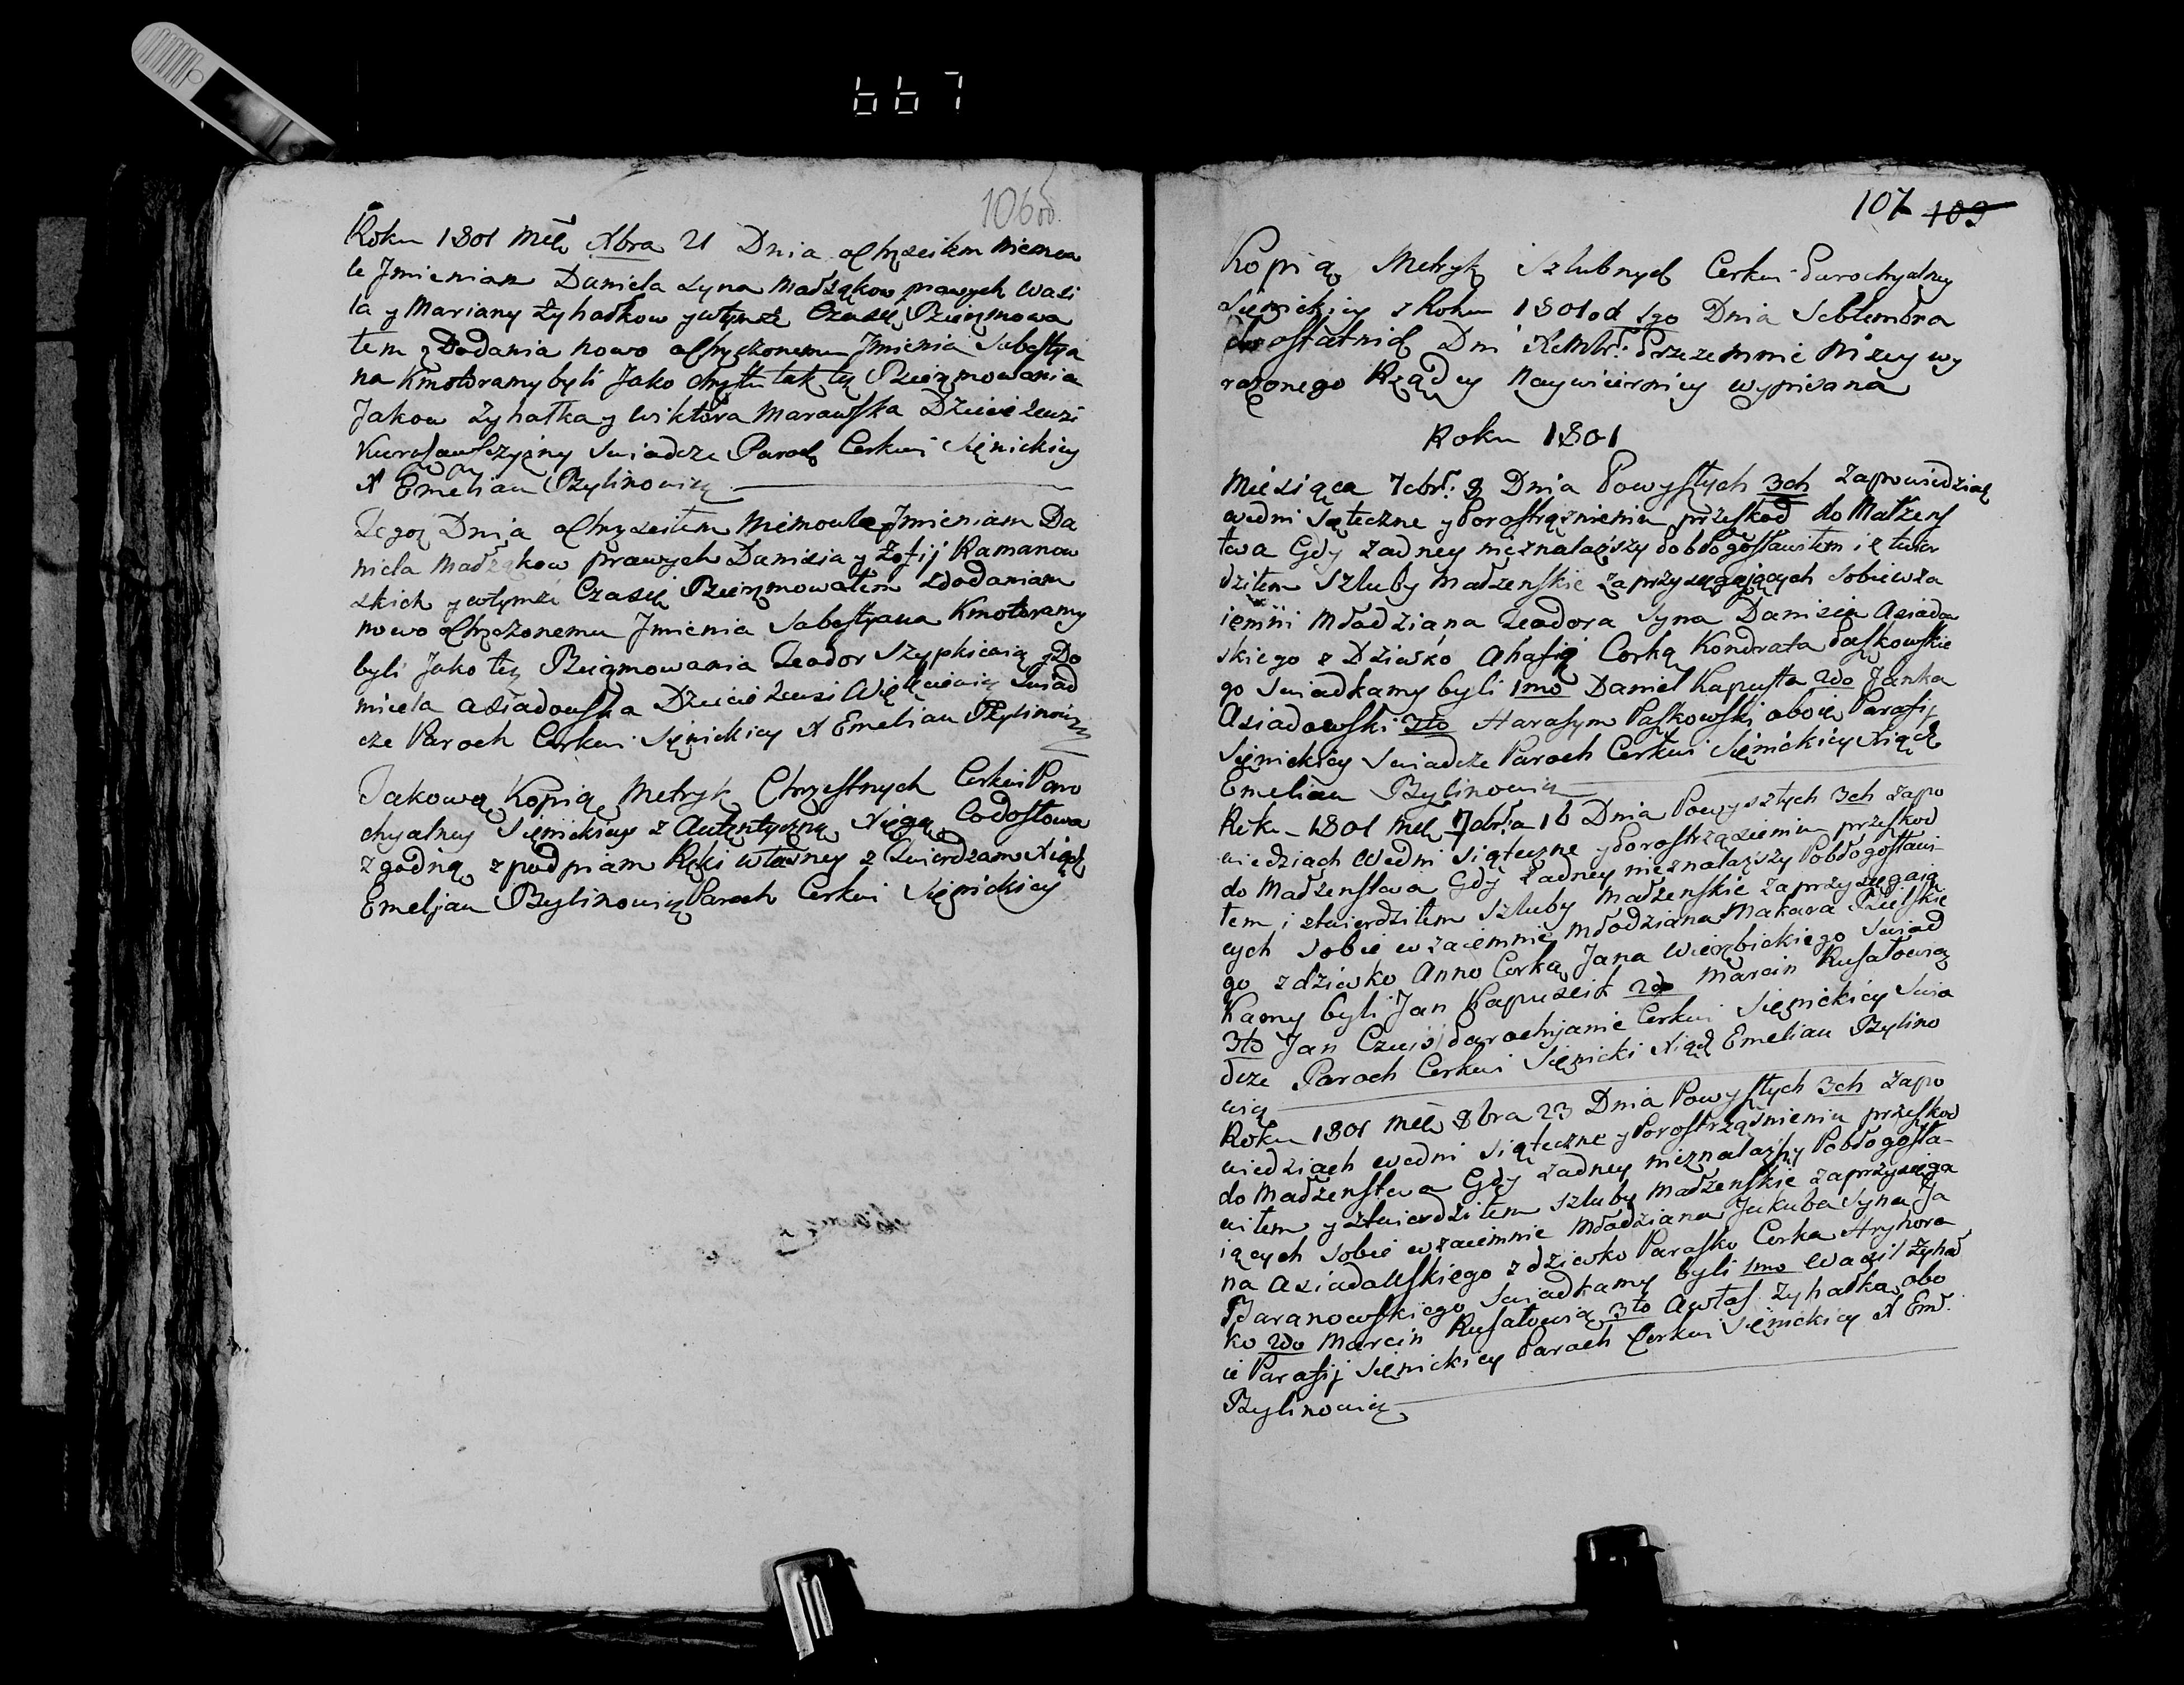 667
106 od.
Roku 1801 Mca Xbra 21 Dnia ochrzciłem Niemow
le Jmieniam Daniela Syna Małżąkow prawych Wasi
la y Mariany Żyhałkow y wtymże Czasię Bierzmowa
łem z Dodania nowo ochrzczonemu Jmienia Sabestya
na Kmotoramy byli Jako chrztu tak też Bierzmowania
Jakow Żyhałka y Wiktora Marawska Dziecie zewsi
Swiadcze Paroch Cerkwi Sięnickiey
X Emelian Bylinowicz
Tegoż Dnia ochrzciłem Niemowle Jmieniam Da
niela Małżąkow prawych Damisia y Zofij Ramanow
skich y wtymże Czasię Bierzmowałem zdodaniam
nowo ochrzczonemu Jmienia Sabestyana Kmotoramy
byli Jako też Bierzmowania Teodor Szypkiewicz y Do
micela Asiadowska Dziecie zewsi Swiad
cze Paroch Cerkwi Sięnickiey X Emelian Bylinowicz
Takową Kopią Metryk Chrzestnych Cerkwi Paro
chyalney Sięnickiey z Autentyczną Xięgą Codosłowa
zgodną z podpisam Ręki własney ztwierdzam Xiądz
Emeljan Bylinowicz Paroch Cerkwi Sięnickiey
107 109
Kopią Metryk Szlubnych Cerkwi Parochyalney
Sięnickiey z Roku 1801 od 1go Dnia Sebtembra
do ostatnich Dni Przezemnie niżey wy
rażonego Rządcy Naywierniey wypisana
Roku 1801
Miesiąca 7cbr: 8 Dnia Powyszłych 3ch Zapowiedziach
wedni Sąteczne y Porostrząsnieniu przeskod do Małżens
twa Gdy żadney nieznalazszy Pobłogosławiłem i ztwier
dziłem Szluby małżenskie zaprzysęgających Sobie wza
iemni Młodziana Teadora Syna Damisia Asiadow
skiego z Dziewko Ahafią Corką Kondrata Paskowskie
go Swiadkamy byli 1mo Daniel Kapusta 2do Janka
Asiadowski 3to Harasym Paskowski oboie Parafij
Sięnickiey Swiadcze Paroch Cerkwi Sięnickiey Xiądz
Emelian Bylinowicz
Roku 1801 Mca 7cbra 16 Dnia Powyszłych 3ch zapo
wiedziach Wedni Siąteczne y Porostrząsieniu przeskod
do Małżenstwa Gdy żadney nieznalazszy Pobłogosławi-
łem i ztwierdziłem Szluby Małżenskie zaprzysęgaią
cych Sobie wzaiemnie Młodziana Makara Bielskie
go zdziewko Anno Corką Jana Wierzbickiego Swiad
kamy byli Jan Kapuscik 2do Marcin Rusałowicz
3to Jan Parochyanie Cerkwi Sięnickiey Swia
dcze Paroch Cerkwi Sięnicki Xiądz Emelian Bylino
wicz
Roku 1801 Mca 8bra 23 Dnia Powyszłych 3ch zapo
wiedziach wedni Siąteczne y Porostrząsnieniu przeskod
do Małżenstwa Gdy żadney nieznalazszy Pobłogosła-
wiłem y ztwierdziłem Szluby Małżenskie zaprzysięga
iących Sobie wzaiemnie Młodziana Jakuba Syna Ja
na Asiadauskiego zdziewko Parasko Corka Hryhora
Baranowskiego Swiadkamy byli 1mo Wasil Żyhał
ko 2do Marcin Rusałowicz 3to Awłas Żyhałka obo
ie Parafij Sięnickiey Paroch Cerkwi Sięnickiey X Em:
Bylinowicz